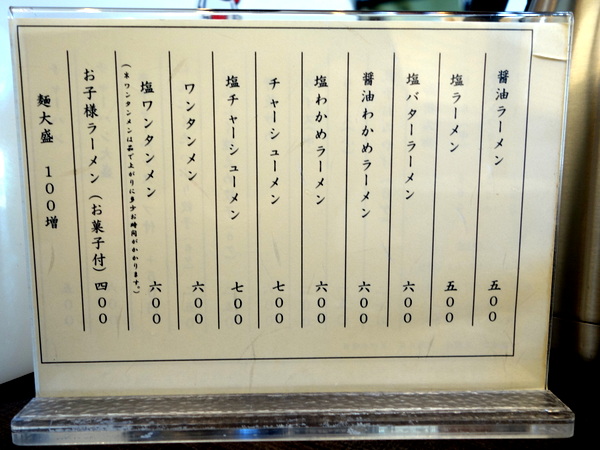 醤油ラーメン 五00
塩ラーメン 五00
塩バターラーメン 六00
醤油わかめラーメン 六00
塩わかめラーメン 六00
チャーシューメン 七00
塩チャーシューメン 七00
ワンタンメン 六00
塩ワンタンメン 六00
(ネワンタンメンは茹で上がりに多少お時間がかかります。)
お子様ラーメン(お菓子付) 四00
麺大盛 100増